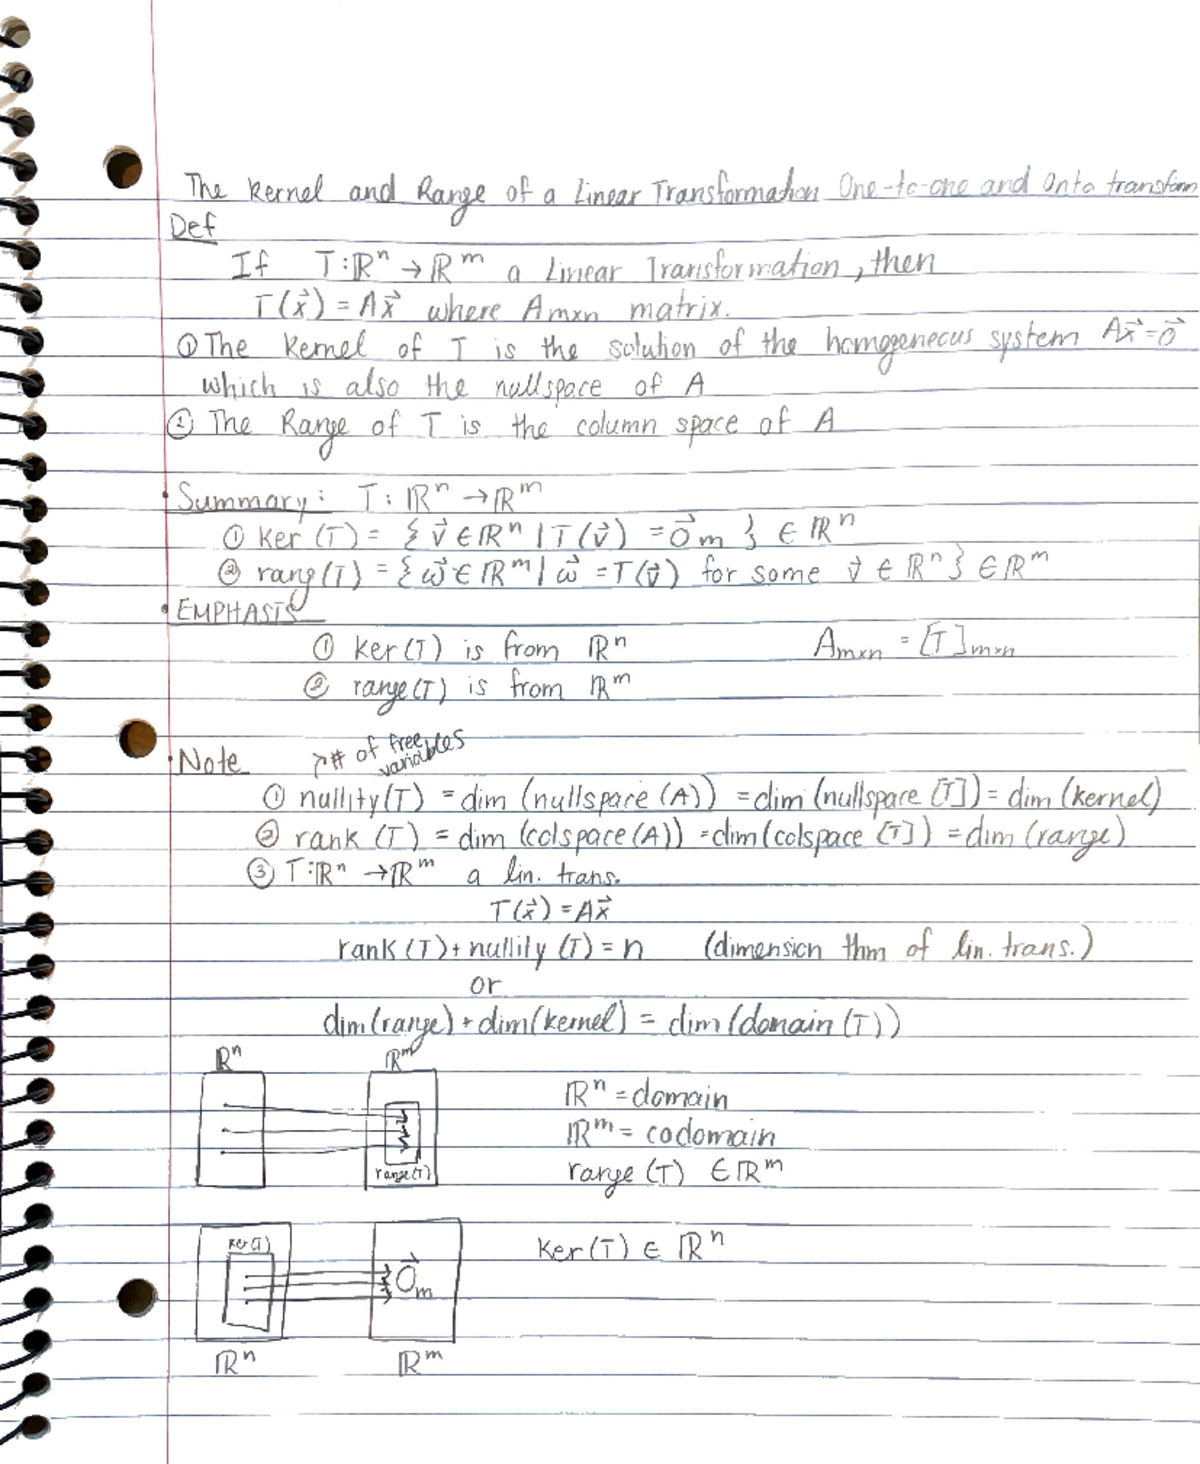 The Kernel and Range of a Linear Transformation One-to-one and Onto transform
Def
If T:ℝⁿ → ℝᵐ a Linear Transformation, then
T(x⃗) = Ax⃗ where Amxn matrix.
① The Kernel of T is the solution of the homogeneous system Ax⃗=0⃗
which is also the nullspace of A
② The Range of T is the column space of A
• Summary: T: ℝⁿ → ℝᵐ
① Ker (T) = { v⃗ ∈ ℝⁿ | T(v⃗) = 0⃗m } ∈ ℝⁿ
② rang(T) = { ω⃗ ∈ ℝᵐ | ω⃗ = T(v⃗) for some v⃗ ∈ ℝⁿ} ∈ ℝᵐ
• EMPHASIS
① Ker(T) is from ℝⁿ Amxn = [T]mxn
② range(T) is from ℝᵐ
• Note ↗# of free variables
① nullity(T) = dim (nullspace (A)) = dim (nullspace [T]) = dim (kernel)
② rank (T) = dim (colspace (A)) = dim (colspace [T]) = dim (range)
③ T:ℝⁿ → ℝᵐ a lin. trans.
T(x⃗) = Ax⃗
rank (T) + nullity (T) = n (dimension thm of lin. trans.)
or
dim(range) + dim(kernel) = dim (domain (T))
ℝⁿ ℝᵐ
ℝⁿ = domain
ℝᵐ = codomain
range(T)
range (T) ∈ ℝᵐ
Ker(T)
0⃗m
Ker (T) ∈ ℝⁿ
ℝⁿ ℝᵐ